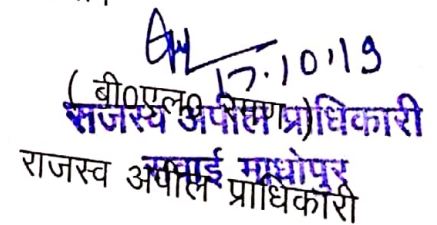 17.10.19
(बी०एल० रमण)
राजस्व अपील प्राधिकारी
सवाई माधोपुर
राजस्व अपील प्राधिकारी